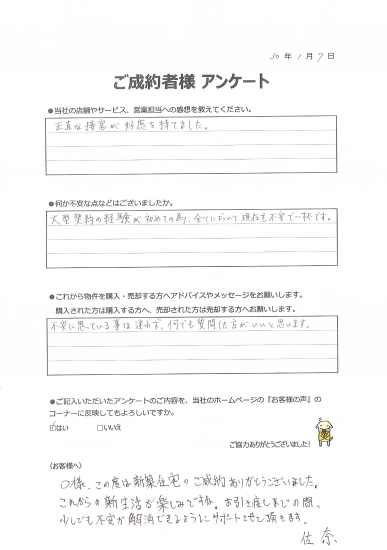 30年1月7日
ご成約者様 アンケート
●当社の店舗やサービス、営業担当への感想を教えてください。
正直な接客が好感を持てました。
●何か不安な点などはございましたか。
大型契約の経験が初めての為、全てにおいて現在も不安で一杯です。
●これから物件を購入・売却する方へアドバイスやメッセージをお願いします。
購入された方は購入する方へ、売却された方は売却する方へお願いします。
不安に思っている事は迷わず、何でも質問した方がいいと思います。
●ご記入いただいたアンケートのご内容を、当社のホームページの『お客様の声』の
コーナーに反映してもよろしいですか。
☑はい □いいえ
ご協力ありがとうございました!
〈お客様へ〉
O様、この度は新築住宅のご成約ありがとうございました。
これからの新生活が楽しみですね。お引き渡しまでの間、
少しでも不安が解消できるようにサポートさせて頂きます。
佐奈